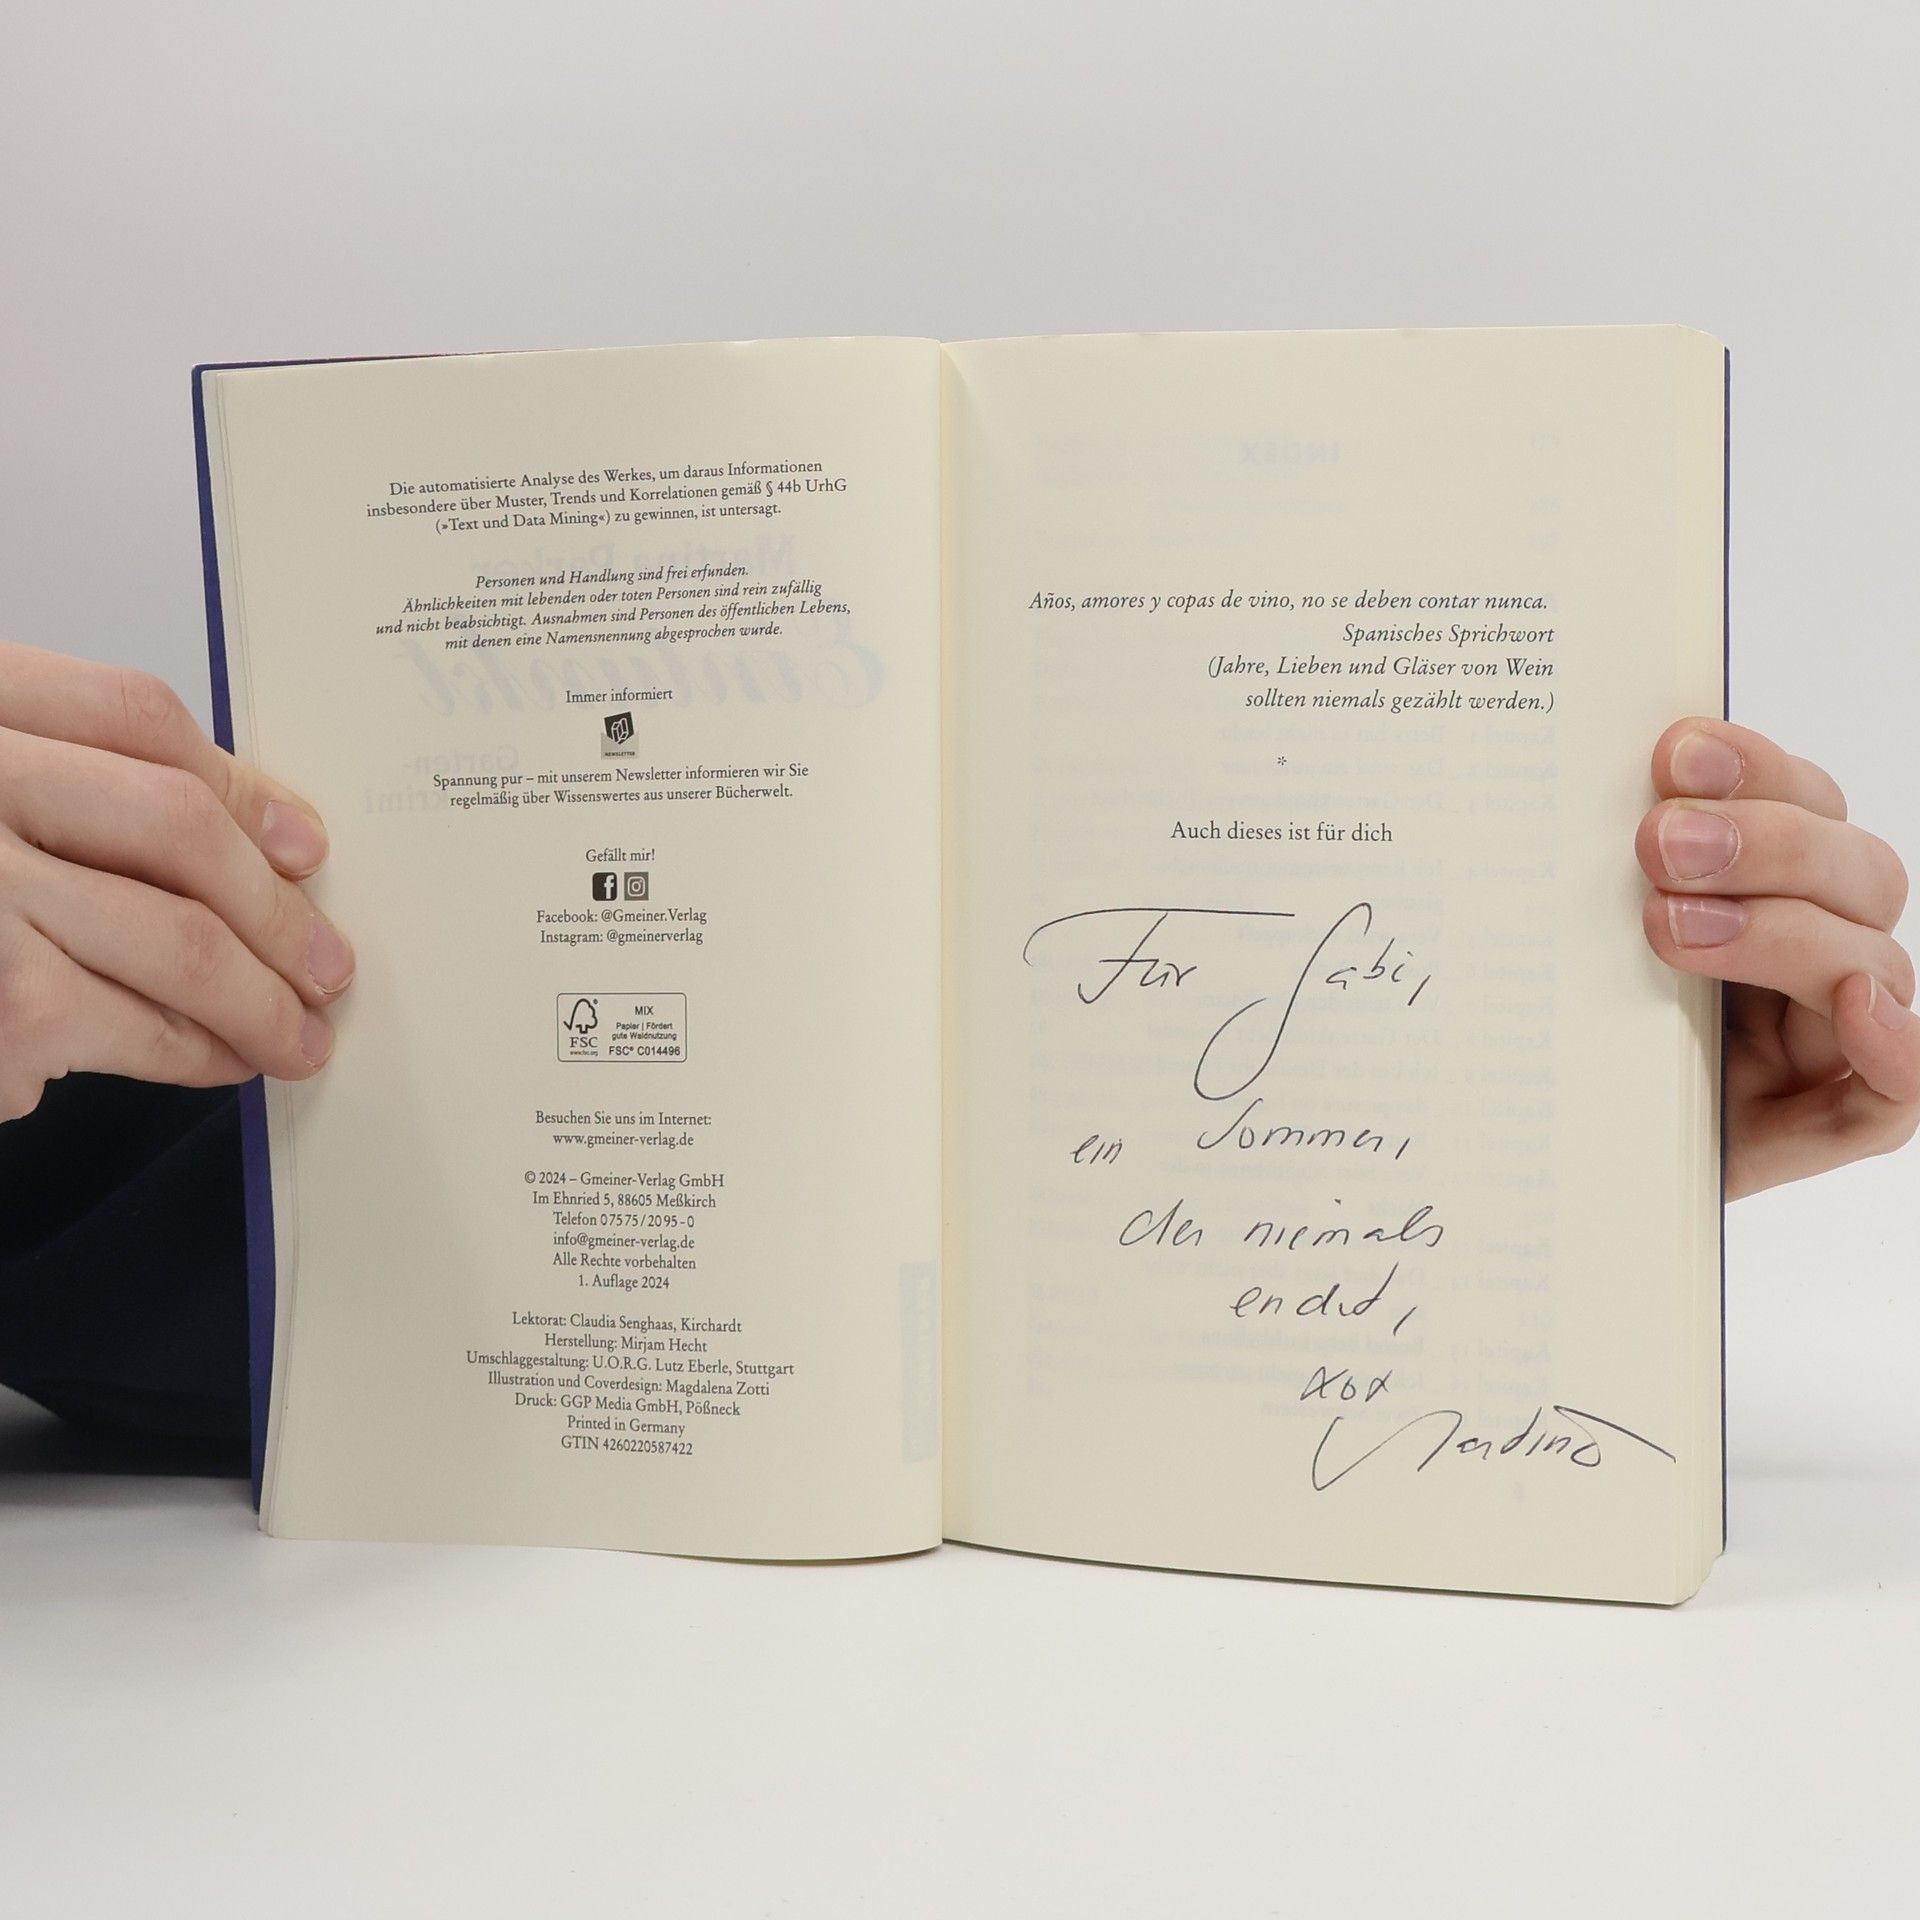 Die automatisierte Analyse des Werkes, um daraus Informationen
insbesondere über Muster, Trends und Korrelationen gemäß § 44b UrhG
(»Text und Data Mining«) zu gewinnen, ist untersagt.
Personen und Handlung sind frei erfunden.
Ähnlichkeiten mit lebenden oder toten Personen sind rein zufällig
und nicht beabsichtigt. Ausnahmen sind Personen des öffentlichen Lebens,
mit denen eine Namensnennung abgesprochen wurde.
Immer informiert
NEWSLETTER
Spannung pur – mit unserem Newsletter informieren wir Sie
regelmäßig über Wissenswertes aus unserer Bücherwelt.
Gefällt mir!
Facebook: @Gmeiner.Verlag
Instagram: @gmeinerverlag
FSC
www.fsc.org
MIX
Papier | Fördert
gute Waldnutzung
FSC® C014496
Besuchen Sie uns im Internet:
www.gmeiner-verlag.de
© 2024 – Gmeiner-Verlag GmbH
Im Ehnried 5, 88605 Meßkirch
Telefon 07575/2095-0
info@gmeiner-verlag.de
Alle Rechte vorbehalten
1. Auflage 2024
Lektorat: Claudia Senghaas, Kirchardt
Herstellung: Mirjam Hecht
Umschlaggestaltung: U.O.R.G. Lutz Eberle, Stuttgart
Illustration und Coverdesign: Magdalena Zotti
Druck: GGP Media GmbH, Pößneck
Printed in Germany
GTIN 4260220587422
Años, amores y copas de vino, no se deben contar nunca.
Spanisches Sprichwort
(Jahre, Lieben und Gläser von Wein
sollten niemals gezählt werden.)
*
Auch dieses ist für dich
Für Gabi,
ein Sommer,
der niemals
endet,
xox
Martina